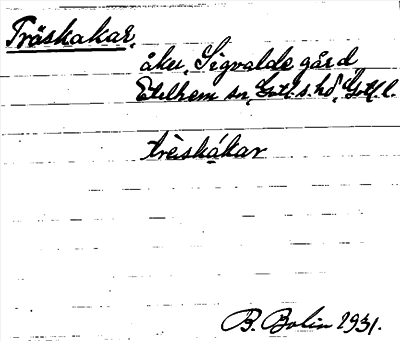 Träskakar,
åker, Sigvalde gård
Etelhem sn, Gotl. s. hd, Gotl. l.
träiskákar
B. Bolin 1931.